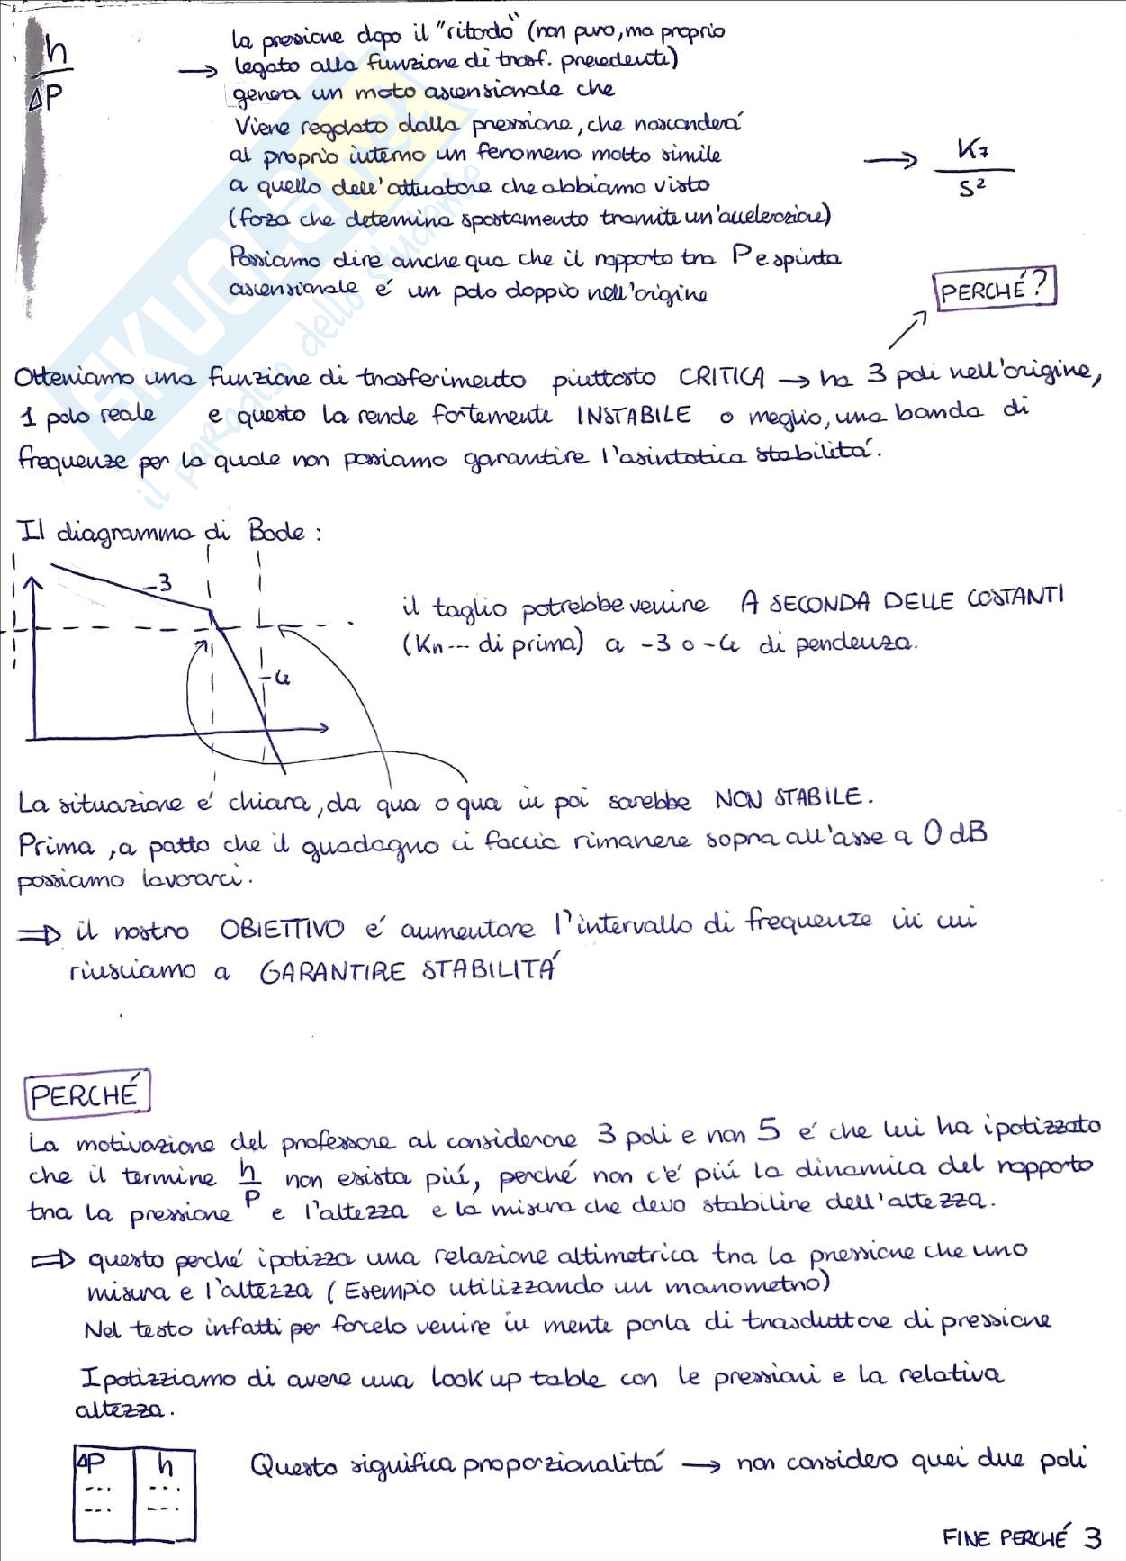 h
ΔP
la pressione dopo il "ritardo" (non puro, ma proprio
→ legato alla funzione di trasf. precedenti)
genera un moto ascensionale che
Viene regolato dalla pressione, che nasconderá
al proprio interno un fenomeno molto simile
a quello dell'attuatore che abbiamo visto
(forza che determina spostamento tramite un'accelerazione)
→ K7
S²
Possiamo dire anche qua che il rapporto tra P e spinta
ascensionale é un polo doppio nell'origine
PERCHÉ?
Otteniamo una funzione di trasferimento piuttosto CRITICA → ha 3 poli nell'origine,
1 polo reale e questo la rende fortemente INSTABILE o meglio, una banda di
frequenze per la quale non possiamo garantire l'asintotica stabilitá.
Il diagramma di Bode:
-3
-4
il taglio potrebbe venire A SECONDA DELLE COSTANTI
(Kn --- di prima) a -3 o -4 di pendenza.
La situazione é chiara, da qua o qua in poi sarebbe NON STABILE.
Prima, a patto che il guadagno ci faccia rimanere sopra all'asse a 0 dB
possiamo lavorarci.
⇒ il nostro OBIETTIVO é aumentare l'intervallo di frequenze in cui
riusciamo a GARANTIRE STABILITÁ
PERCHÉ
La motivazione del professore al considerare 3 poli e non 5 é che lui ha ipotizzato
che il termine h/P non esista piú, perché non c'é piú la dinamica del rapporto
tra la pressione e l'altezza e la misura che devo stabilire dell'altezza.
⇒ questo perché ipotizza una relazione altimetrica tra la pressione che uno
misura e l'altezza (Esempio utilizzando un manometro)
Nel testo infatti per farcelo venire in mente parla di trasduttore di pressione
Ipotizziamo di avere una look up table con le pressioni e la relativa
altezza.
ΔP h
--- ---
--- ---
Questo significa proporzionalitá → non considero quei due poli
FINE PERCHÉ 3
SKUOLA.net
il paradiso dello studente